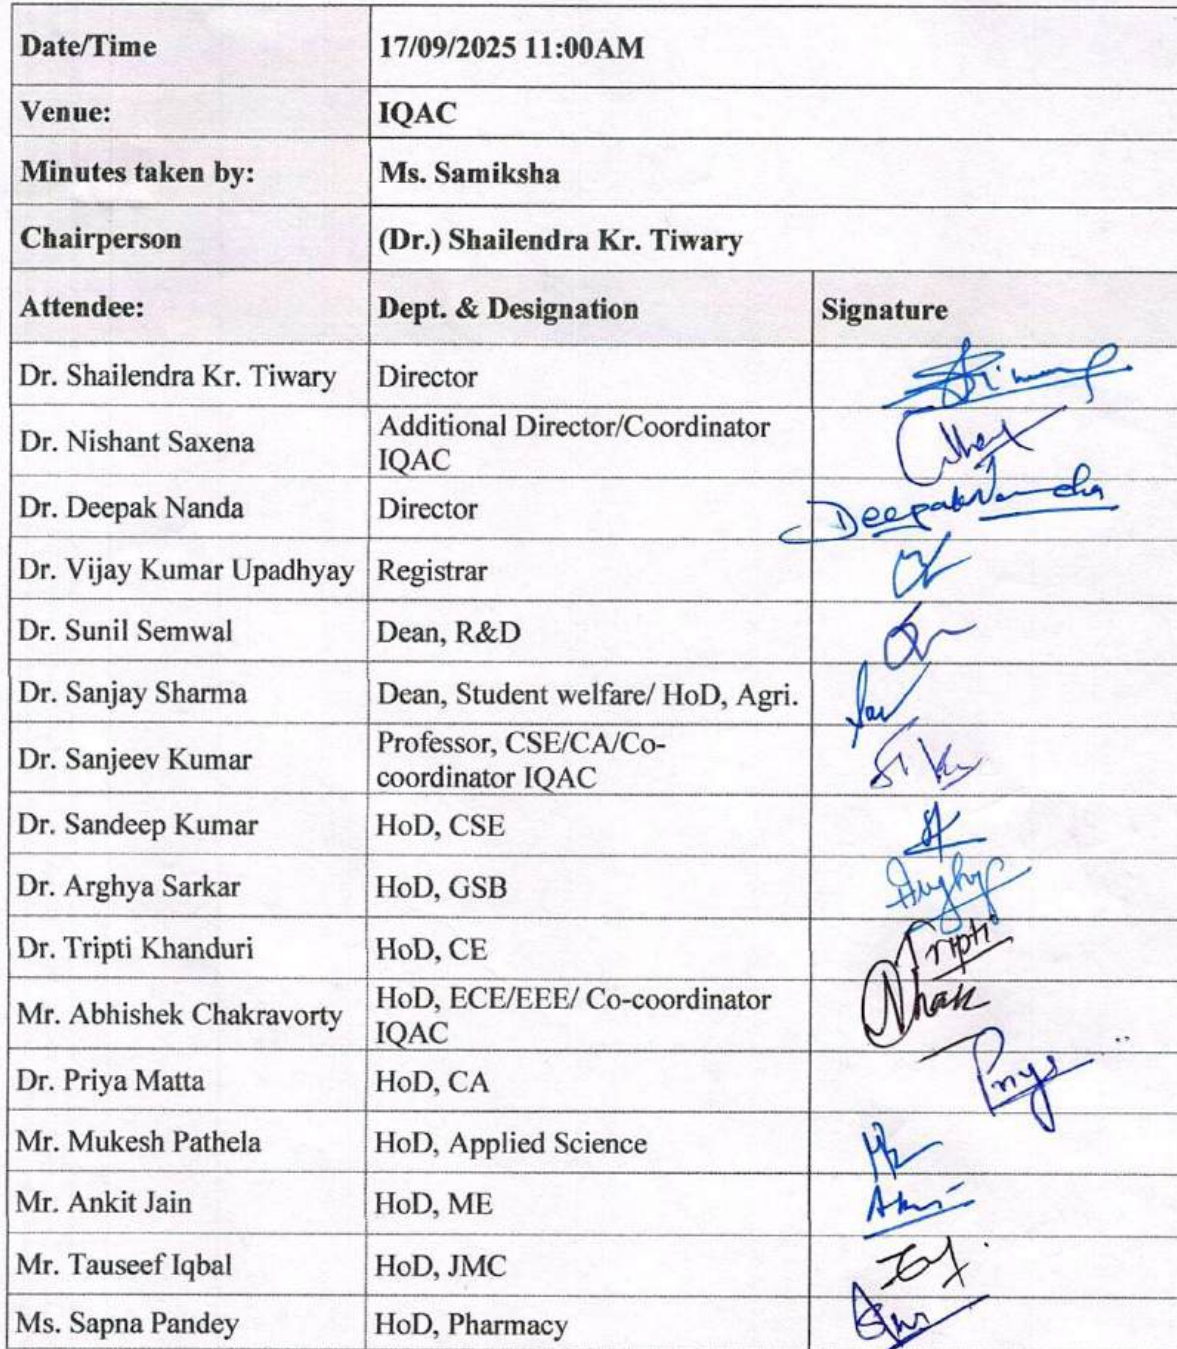 Date/Time 17/09/2025 11:00AM
Venue: IQAC
Minutes taken by: Ms. Samiksha
Chairperson (Dr.) Shailendra Kr. Tiwary
Attendee: Dept. & Designation Signature
Dr. Shailendra Kr. Tiwary Director
Dr. Nishant Saxena Additional Director/Coordinator
IQAC
Dr. Deepak Nanda Director DeepakNanda
Dr. Vijay Kumar Upadhyay Registrar
Dr. Sunil Semwal Dean, R&D
Dr. Sanjay Sharma Dean, Student welfare/ HoD, Agri.
Dr. Sanjeev Kumar Professor, CSE/CA/Co-
coordinator IQAC
Dr. Sandeep Kumar HoD, CSE
Dr. Arghya Sarkar HoD, GSB
Dr. Tripti Khanduri HoD, CE Tripti
Mr. Abhishek Chakravorty HoD, ECE/EEE/ Co-coordinator
IQAC
Dr. Priya Matta HoD, CA Priya
Mr. Mukesh Pathela HoD, Applied Science
Mr. Ankit Jain HoD, ME
Mr. Tauseef Iqbal HoD, JMC
Ms. Sapna Pandey HoD, Pharmacy